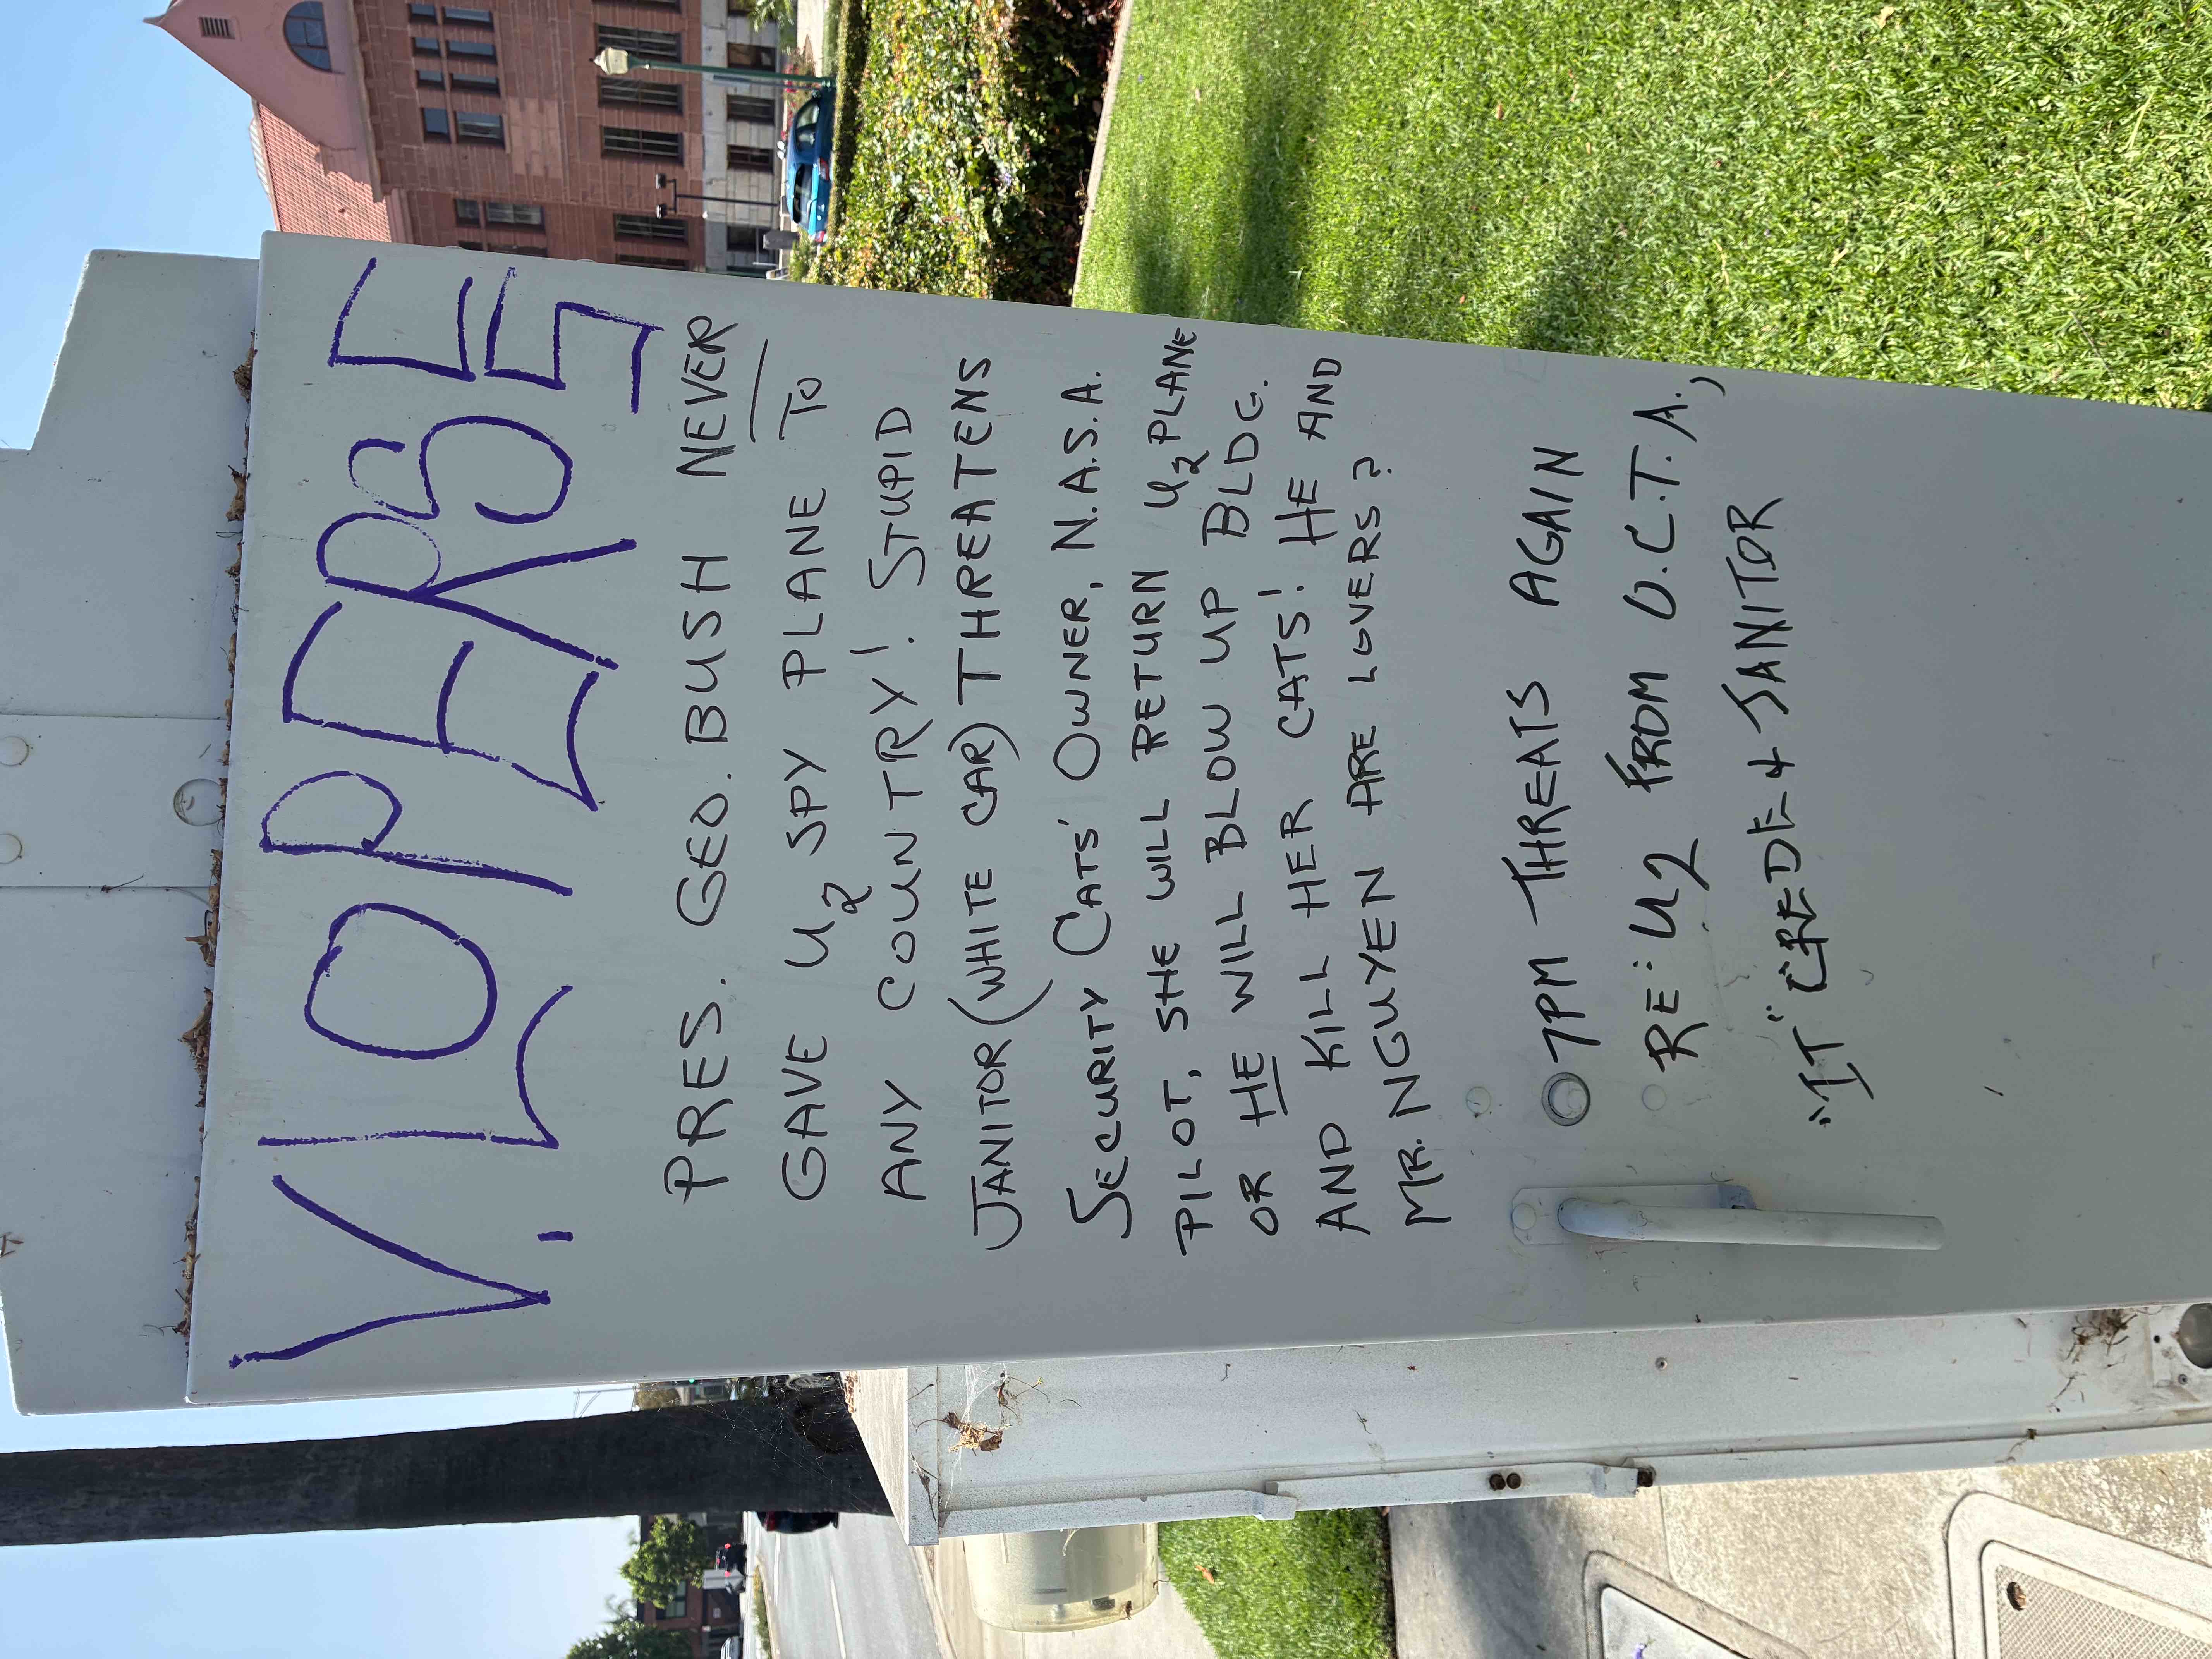 V. LOPERS
PRES. GEO. BUSH NEVER
GAVE U2 SPY PLANE TO
ANY COUNTRY! STUPID
JANITOR (WHITE CAR) THREATENS
SECURITY CATS' OWNER, N.A.S.A.
PILOT, SHE WILL RETURN U2 PLANE
OR HE WILL BLOW UP BLDG.
AND KILL HER CATS! HE AND
MR. NGUYEN ARE LOVERS?
7PM THREATS AGAIN
RE: U2 FROM O.C.T.A.,
"IT" CREDE + JANITOR